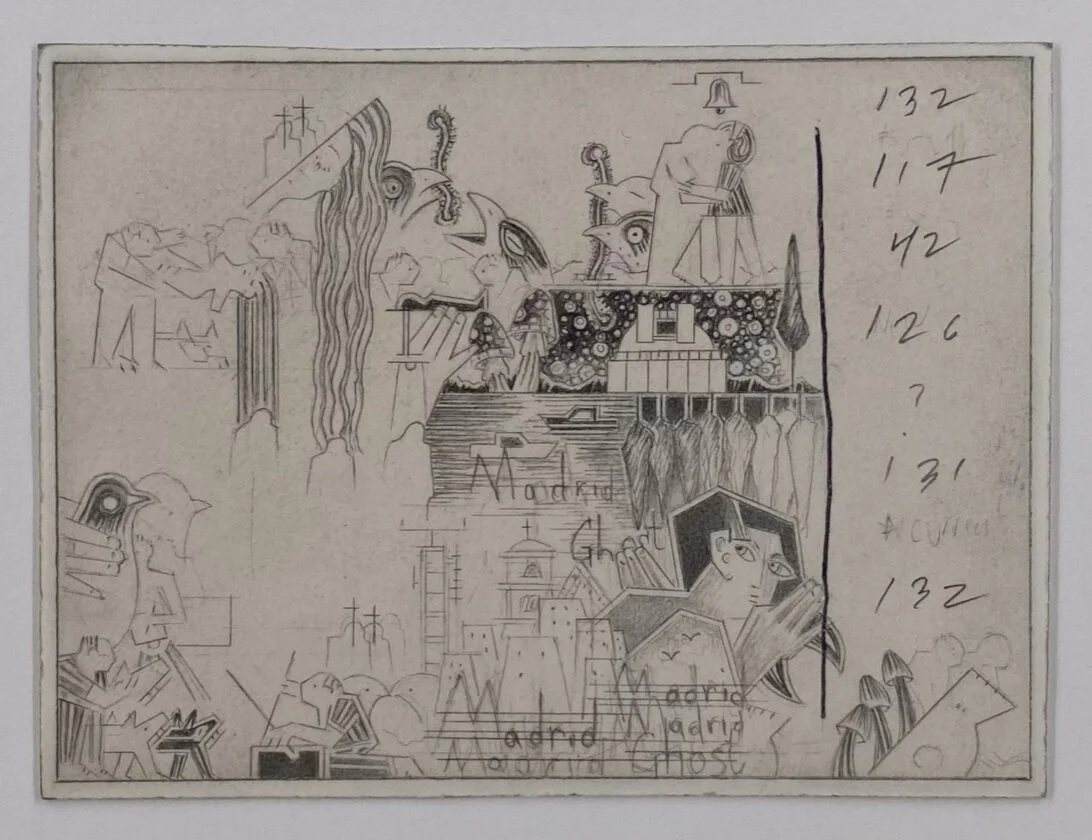 132
117
42
126
?
131
132
Madrid
Ghost
Madrid
Madrid
adrid
Madrid Ghost